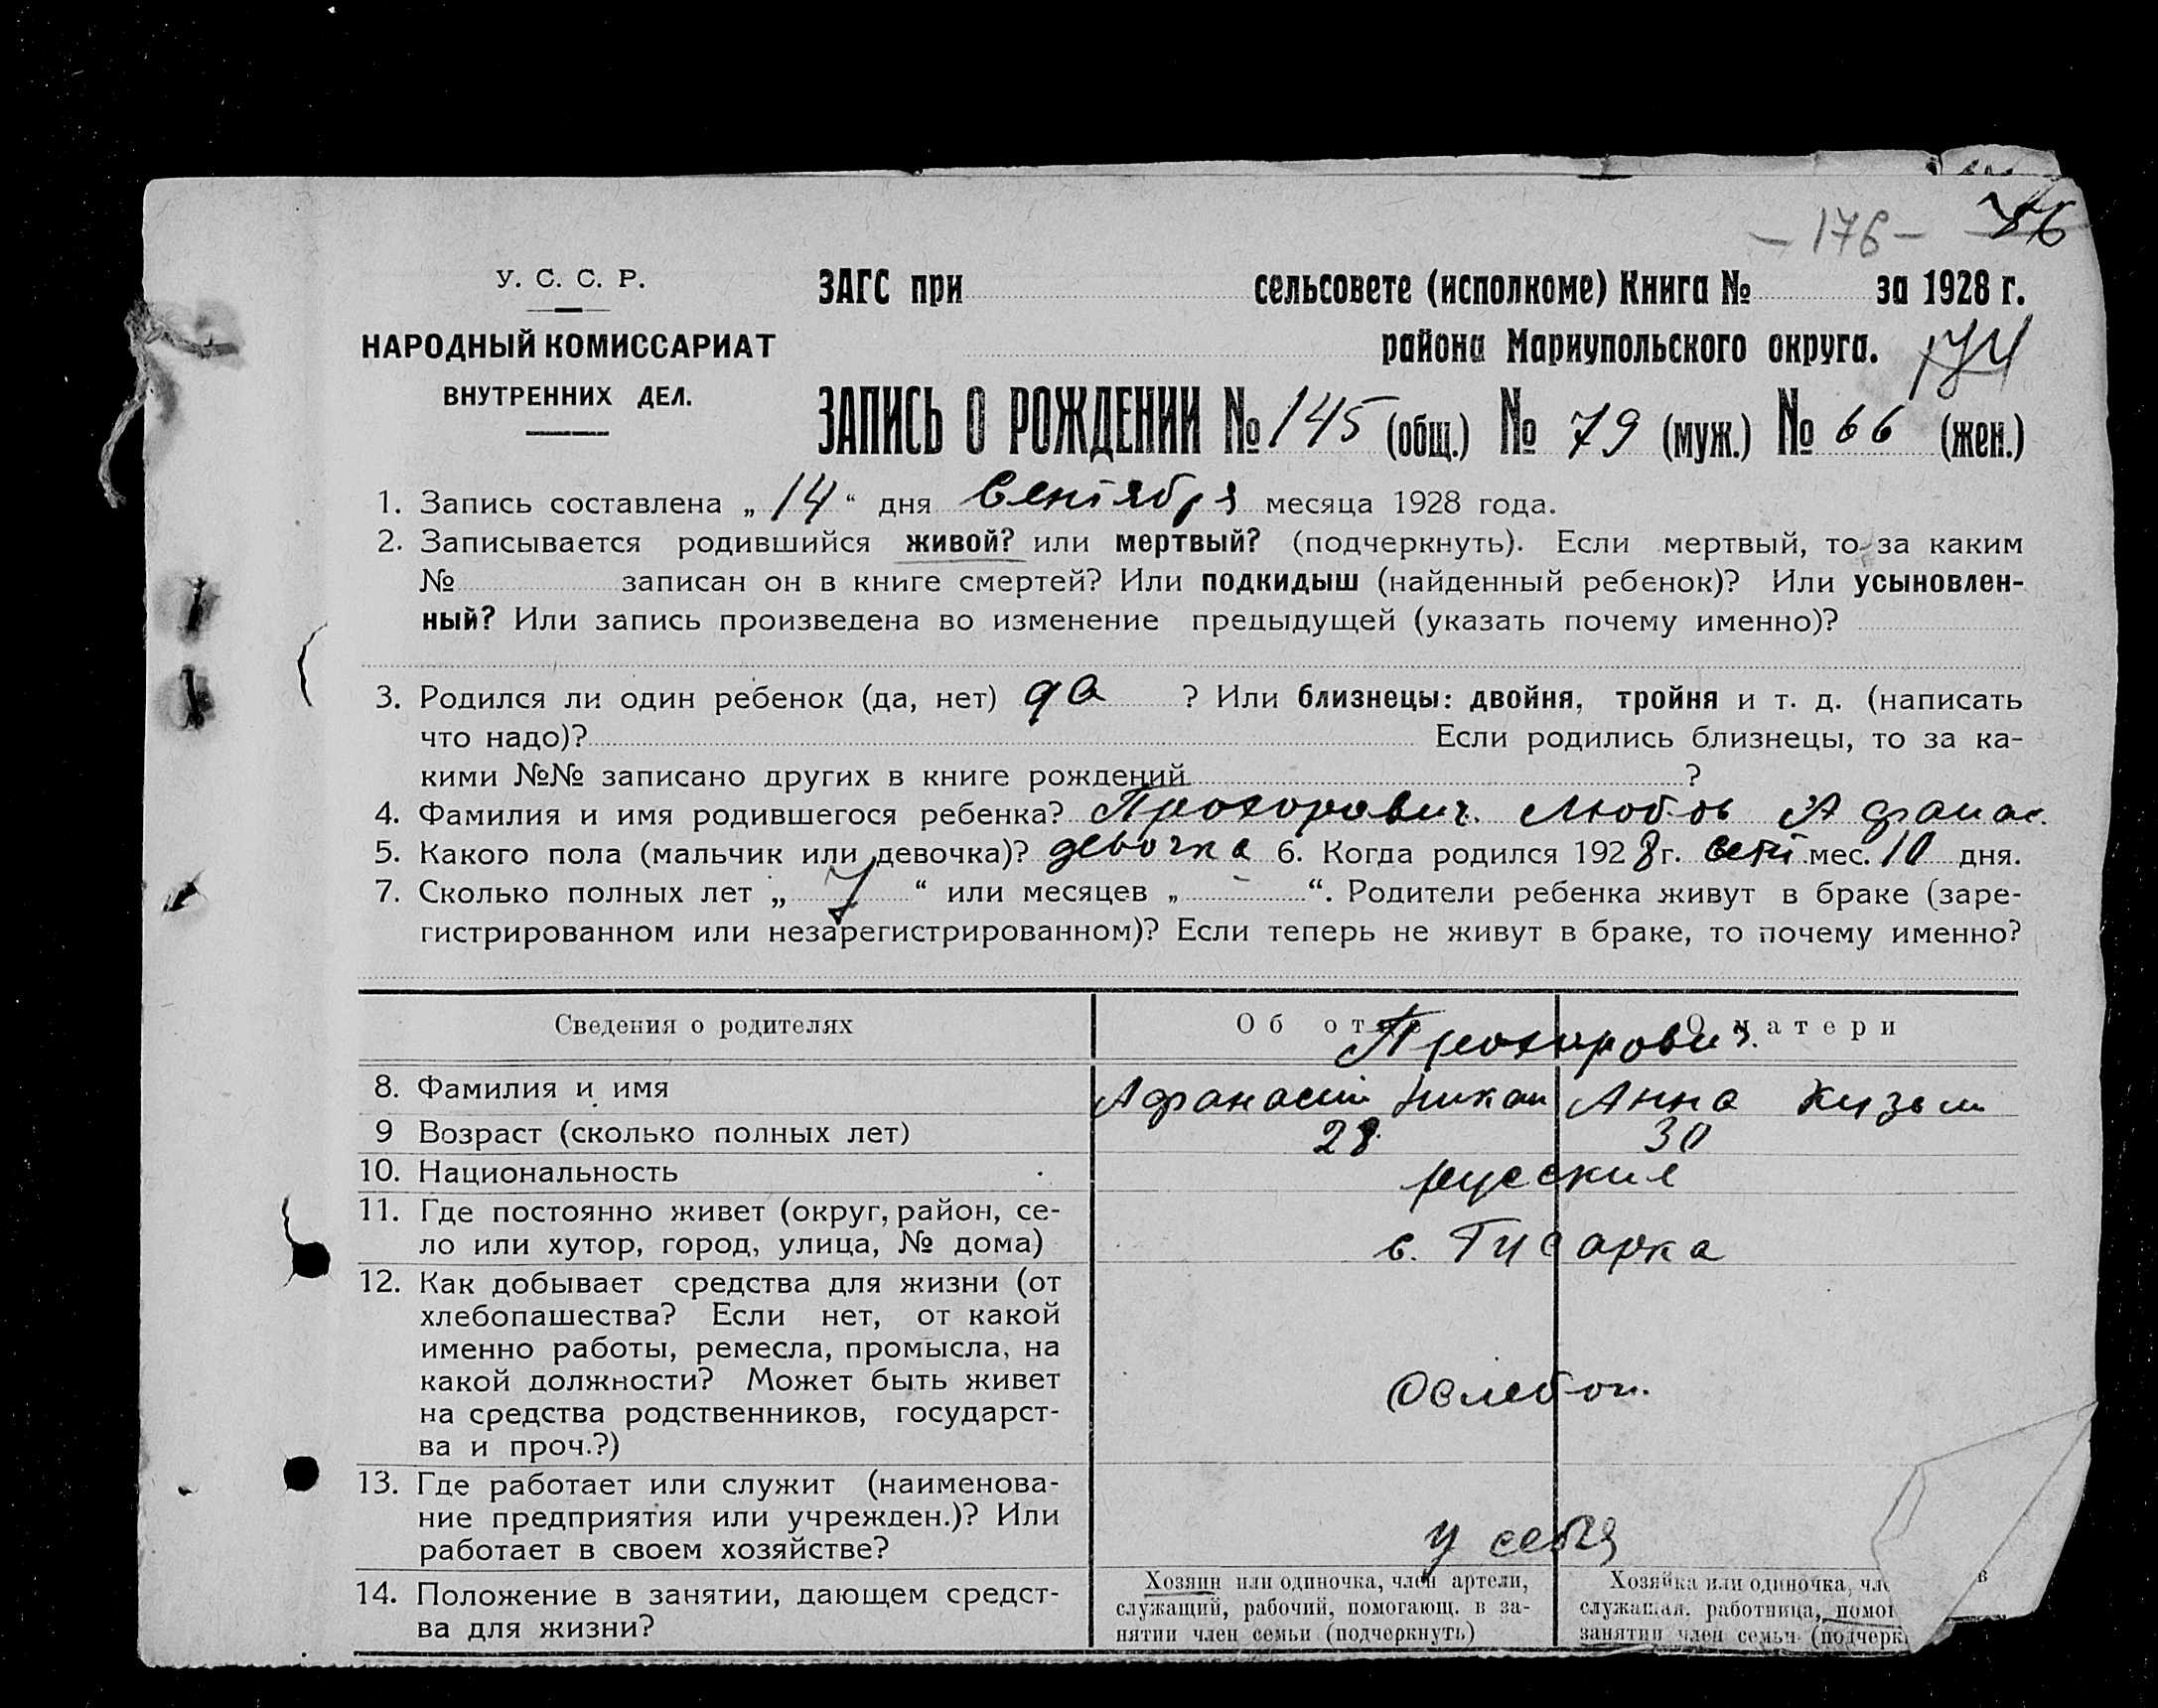 - 176 - 76
У. С. С. Р. ЗАГС при сельсовете (исполкоме) Книга № за 1928 г.
НАРОДНЫЙ КОМИССАРИАТ района Мариупольского округа. 174
ВНУТРЕННИХ ДЕЛ.
ЗАПИСЬ О РОЖДЕНИИ № 145 (общ.) № 79 (муж.) № 66 (жен.)
1. Запись составлена „ 14 “ дня Сентября месяца 1928 года.
2. Записывается родившийся живой? или мертвый? (подчеркнуть). Если мертвый, то за каким
№ записан он в книге смертей? Или подкидыш (найденный ребенок)? Или усыновлен-
ный? Или запись произведена во изменение предыдущей (указать почему именно)?
3. Родился ли один ребенок (да, нет) да ? Или близнецы: двойня, тройня и т. д. (написать
что надо)? Если родились близнецы, то за ка-
кими №№ записано других в книге рождений ?
4. Фамилия и имя родившегося ребенка? Прохорович Любовь Афанас.
5. Какого пола (мальчик или девочка)? девочка 6. Когда родился 1928 г. сент мес. 10 дня.
7. Сколько полных лет „ 7 “ или месяцев „ - “. Родители ребенка живут в браке (заре-
гистрированном или незарегистрированном)? Если теперь не живут в браке, то почему именно?
Сведения о родителях Об отце О матери
Прохорович
8. Фамилия и имя Афанасий Никан Анна Кузьм
9 Возраст (сколько полных лет) 28 30
10. Национальность русские
11. Где постоянно живет (округ, район, се-
ло или хутор, город, улица, № дома) с. Гусарка
12. Как добывает средства для жизни (от
хлебопашества? Если нет, от какой
именно работы, ремесла, промысла, на
какой должности? Может быть живет
на средства родственников, государст-
ва и проч.?)
13. Где работает или служит (наименова-
ние предприятия или учрежден.)? Или
работает в своем хозяйстве? у себя
14. Положение в занятии, дающем средст-
ва для жизни?
Хозяин или одиночка, член артели,
служащий, рабочий, помогающ. в за-
нятии член семьи (подчеркнуть)
Хозяйка или одиночка, чле
служащая, работница, помог
занятии член семьи (подчерк